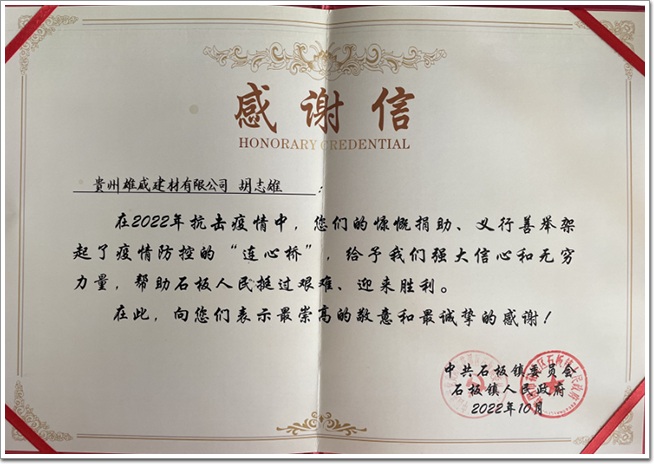 感谢信
HONORARY CREDENTIAL
贵州雄威建材有限公司 胡志雄 :
在2022年抗击疫情中，您们的慷慨捐助、义行善举架
起了疫情防控的“连心桥”，给予我们强大信心和无穷
力量，帮助石板人民挺过艰难、迎来胜利。
在此，向您们表示最崇高的敬意和最诚挚的感谢！
中共石板镇委员会
石板镇人民政府
2022年10月